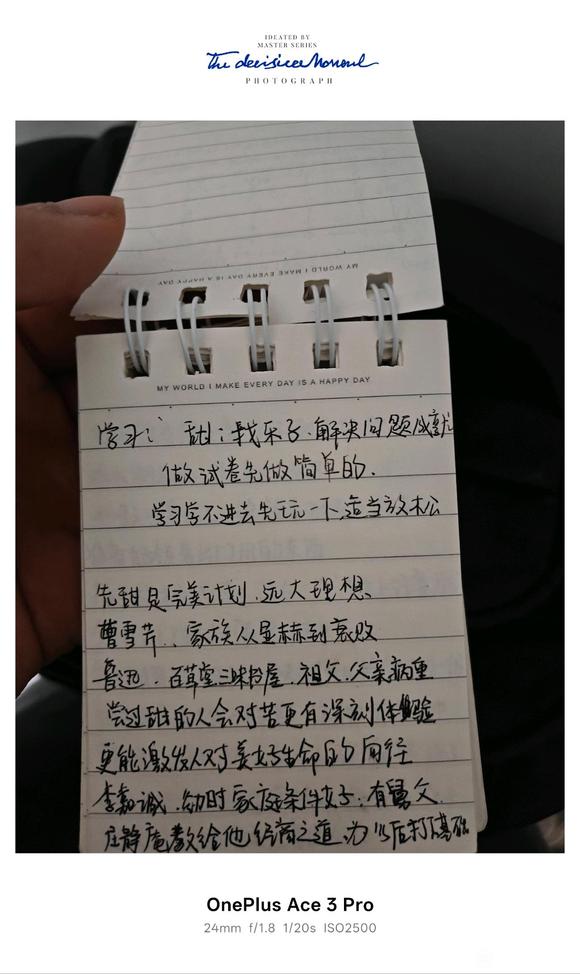 IDEATED BY
MASTER SERIES
The decisive Moment
PHOTOGRAPH
MY WORLD I MAKE EVERY DAY IS A HAPPY DAY
MY WORLD I MAKE EVERY DAY IS A HAPPY DAY
学习： 甜：找乐子.解决问题成就
做试卷先做简单的.
学习学不进去先玩一下,适当放松
先甜是完美计划.远大理想.
曹雪芹.. 家族从显赫到衰败
鲁迅.百草堂三味书屋.祖父.父亲病重
尝过甜的人会对苦更有深刻体验
更能激发人对美好生命的向往
李嘉诚.幼时家庭条件好.有舅父.
庄静庵教给他经商之道.为以后打基础
OnePlus Ace 3 Pro
24mm f/1.8 1/20s ISO2500